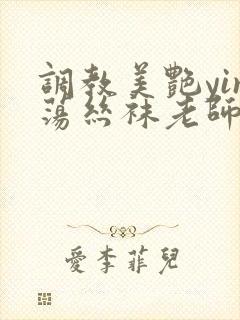 調教美艷yin
蕩絲袜老師
愛李菲兒